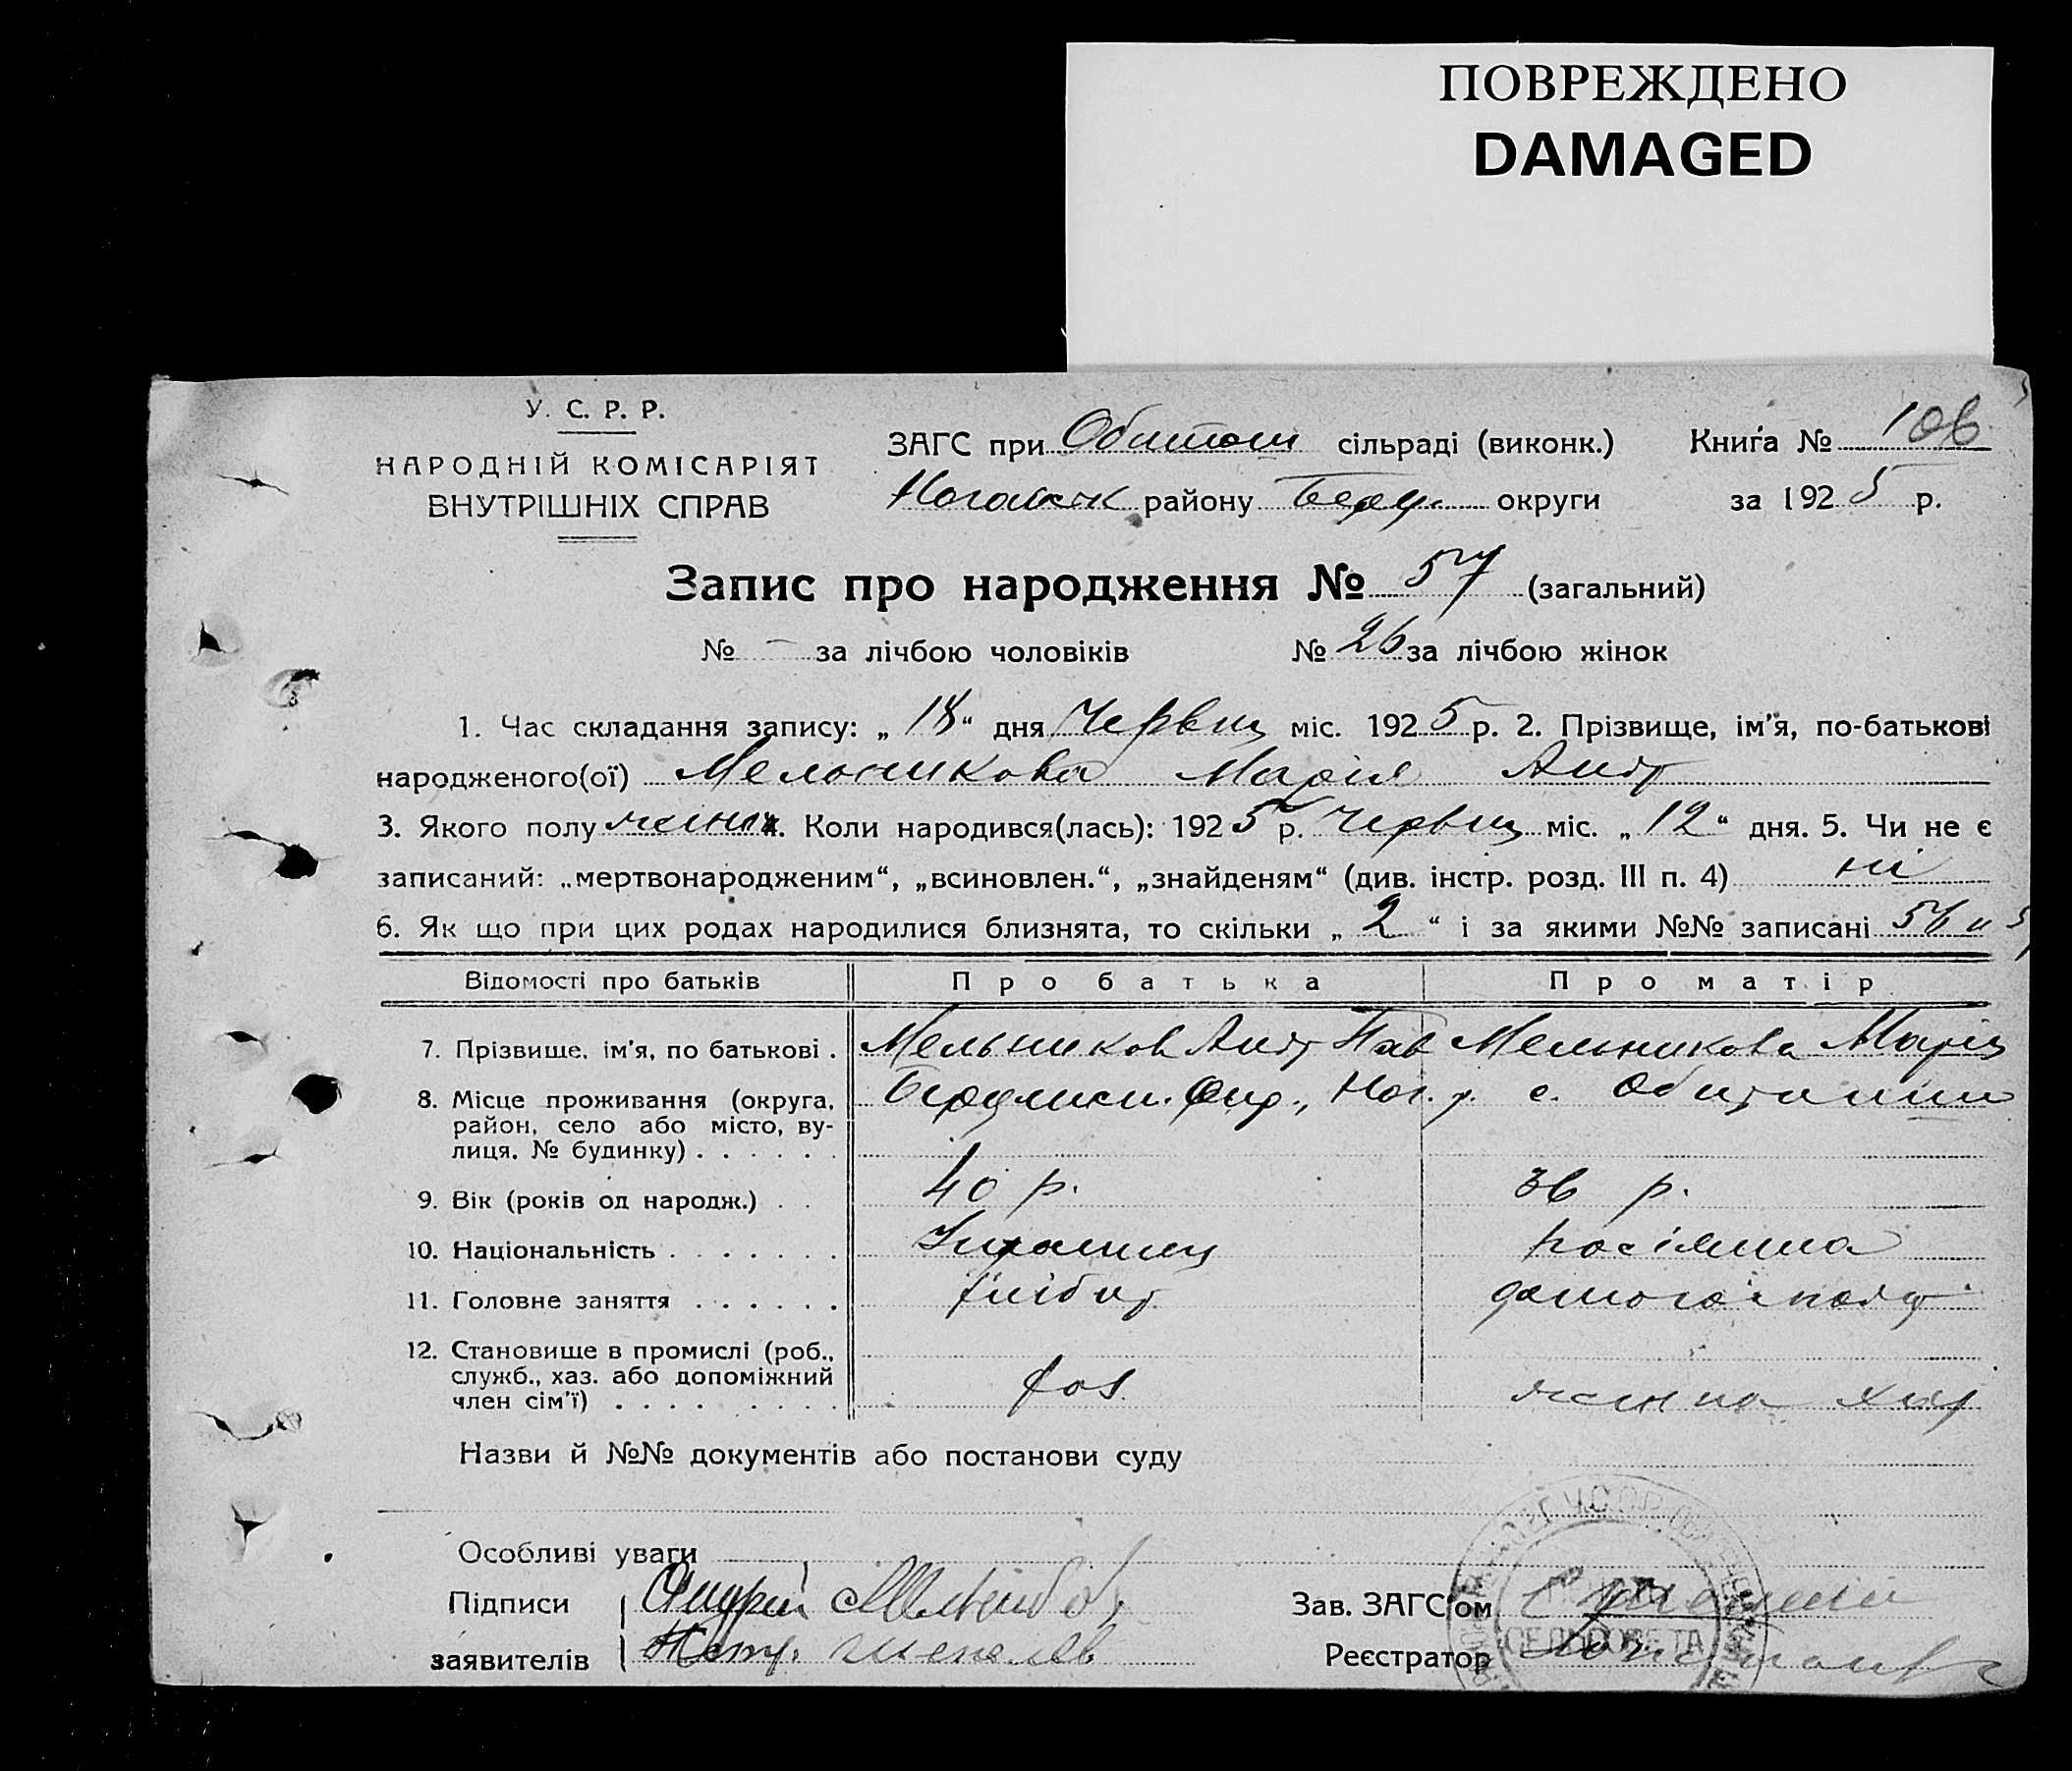 ПОВРЕЖДЕНО
DAMAGED
У. С. Р. Р.
НАРОДНІЙ КОМІСАРІЯТ
ВНУТРІШНІХ СПРАВ
ЗАГС при сільраді (виконк.) Книга № 106
Ногайськ району Берд. округи за 1925 р.
Запис про народження № 57 (загальний)
№ - за лічбою чоловіків № 26 за лічбою жінок
1. Час складання запису: „18“ дня Червця міс. 1925 р. 2. Прізвище, ім'я, по-батькові
народженого(ої) Мельникова Марія Андр
3. Якого полу жіноч. Коли народився(лась): 1925 р. Червця міс. „12“ дня. 5. Чи не є
записаний: „мертвонародженим“, „всиновлен.“, „знайденям“ (див. інстр. розд. III п. 4) ні
6. Як що при цих родах народилися близнята, то скільки „2“ і за якими №№ записані 56 и 5
Відомості про батьків Про батька Про матір
7. Прізвище, ім'я, по батькові . Мельников Андр Пав Мельникова Марія
8. Місце проживання (округа,
район, село або місто, ву-
лиця, № будинку) . . . . . . Бердянськ. Окр., Ног. р. с. Обиточни
9. Вік (років од народж.) . . 40 р. 36 р.
10. Національність . . . . . . .
11. Головне заняття . . . . . . хлібор домогоспод
12. Становище в промислі (роб.,
служб., хаз. або допоміжний
член сім'ї) . . . . . . . . . хаз жінка хаз
Назви й №№ документів або постанови суду
Особливі уваги
Підписи Андрій Зав. ЗАГС'ом
заявителів Петр. Шепелев Реєстратор
СЕЛЬСОВЕТА